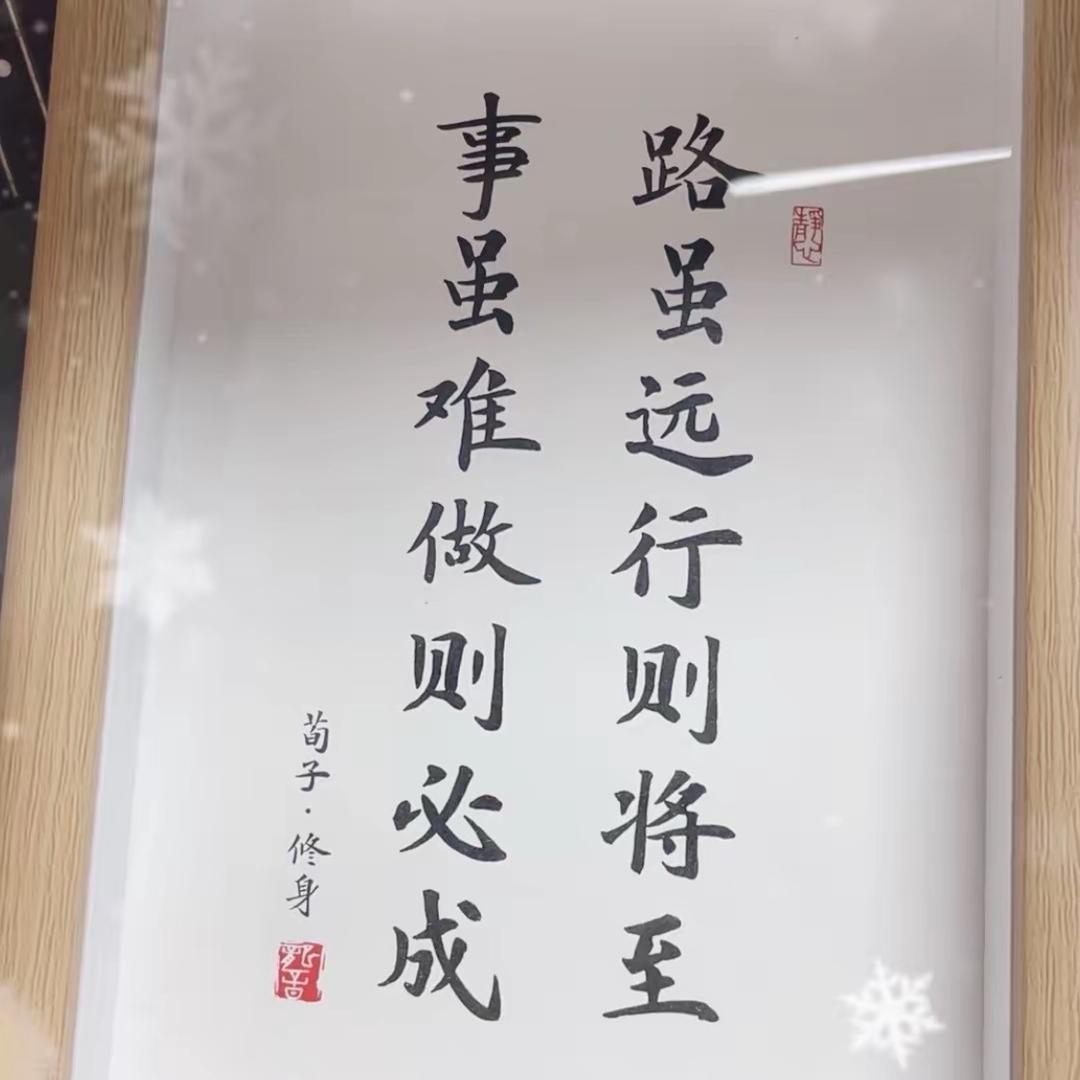 静心
路虽远行则将至
事虽难做则必成
荀子·修身